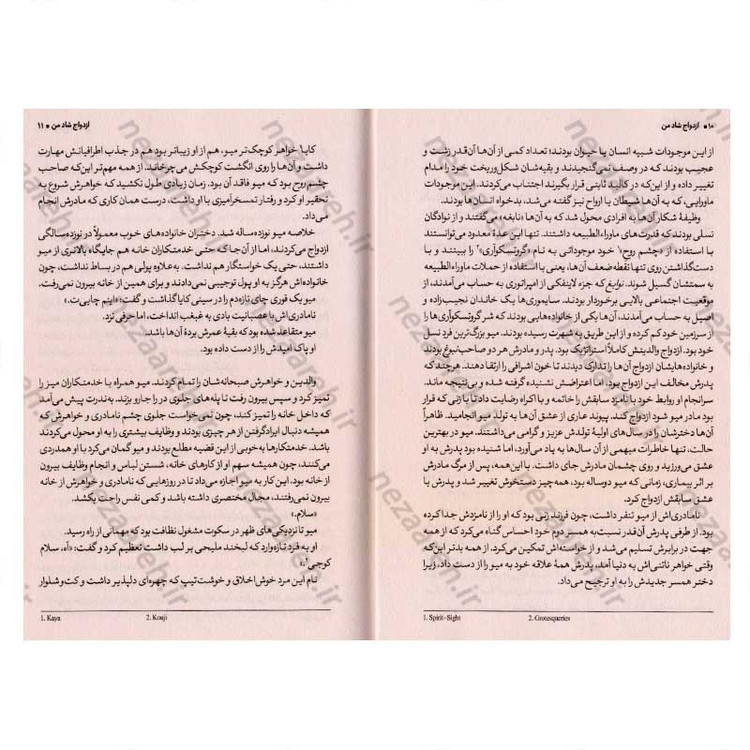 ۱۰ ■ ازدواج شاد من
از این موجودات شبیه انسان یا حیوان بودند؛ تعداد کمی از آن‌ها آن‌قدر زشت و
عجیب بودند که در وصف نمی‌گنجیدند و بقیه‌شان شکل‌وریخت خود را مدام
تغییر داده و از این‌که در کالبد ثابتی قرار بگیرند اجتناب می‌کردند. این موجودات
ماورایی، که به آن‌ها شیطان یا ارواح نیز گفته می‌شد، بدخواه انسان‌ها بودند.
وظیفهٔ شکار آن‌ها به افرادی محول شد که به آن‌ها «نابغه» می‌گفتند و از نوادگان
نسلی بودند که قدرت‌های ماوراءالطبیعه داشتند. تنها این عدهٔ معدود می‌توانستند
با استفاده از «چشم روح»۱ خود موجوداتی به نام «گروتسکوآری»۲ را ببینند و با
دست‌گذاشتن روی تنها نقطه‌ضعف آن‌ها، یعنی با استفاده از حملات ماوراءالطبیعه
به سمتشان گسیل شوند. نوابغ که جزء لاینفکی از امپراتوری به حساب می‌آمدند، از
موقعیت اجتماعی بالایی برخوردار بودند. سایموری‌ها یک خاندان نجیب‌زاده و
اصیل به حساب می‌آمدند، آن‌ها یکی از خانواده‌هایی بودند که شر گروتسکوآری‌ها را
از سرزمین خود کم کرده و از این طریق به شهرت رسیده بودند. میو بزرگ‌ترین فرد نسل
خود بود. ازدواج والدینش کاملاً استراتژیک بود. پدر و مادرش هر دو صاحب‌نبوغ بودند
و خانواده‌هایشان ازدواج آن‌ها را تدارک دیدند تا خون اشرافی را ارتقا دهند. هرچند که
پدرش مخالف این ازدواج بود، اما اعتراضش نشنیده گرفته شده و بی‌نتیجه ماند.
سرانجام او روابط خود با نامزد سابقش را خاتمه و با اکراه رضایت داد تا با زنی که قرار
بود مادر میو شود ازدواج کند. پیوند عاری از عشق آن‌ها به تولد میو انجامید. ظاهراً
آن‌ها دخترشان را در سال‌های اولیهٔ تولدش عزیز و گرامی می‌داشتند. میو در بهترین
حالت، تنها خاطرات مبهمی از آن سال‌ها به یاد می‌آورد، اما شنیده بود پدرش به او
عشق می‌ورزید و روی چشمان مادرش جای داشت. با این‌همه، پس از مرگ مادرش
بر اثر بیماری، زمانی که میو دوساله بود، همه‌چیز دستخوش تغییر شد و پدرش با
عشق سابقش ازدواج کرد.
نامادری‌اش از میو تنفر داشت، چون فرزند زنی بود که او را از نامزدش جدا کرده
بود. از طرفی پدرش آن‌قدر نسبت به همسر دوم خود احساس گناه می‌کرد که از همه
جهت در برابرش تسلیم می‌شد و از خواسته‌اش تمکین می‌کرد. از همه بدتر این‌که
وقتی خواهر ناتنی‌اش به دنیا آمد، پدرش همهٔ علاقه خود به میو را از دست داد، زیرا
دختر همسر جدیدش را به او ترجیح می‌داد.
1. Spirit-Sight 2. Grotesqueries
ازدواج شاد من ■ ۱۱
کایا۱ خواهر کوچک‌تر میو، هم از او زیباتر بود هم در جذب اطرافیانش مهارت
داشت و آن‌ها را روی انگشت کوچکش می‌چرخاند. از همه مهم‌تر این‌که صاحب
چشم روح بود که میو فاقد آن بود. زمان زیادی طول نکشید که خواهرش شروع به
تحقیر او کرد و رفتار تمسخرآمیزی با او داشت، درست همان کاری که مادرش انجام
می‌داد.
خلاصه میو نوزده‌ساله شد. دختران خانواده‌های خوب معمولاً در نوزده‌سالگی
ازدواج می‌کردند، اما از آن‌جا که حتی خدمتکاران خانه هم جایگاه بالاتری از میو
داشتند، حتی یک خواستگار هم نداشت. به‌علاوه پولی هم در بساط نداشت، چون
خانواده‌اش هرگز به او پول توجیبی نمی‌دادند و برای همین از خانه بیرون نمی‌رفت.
میو یک قوری چای تازه‌دم را در سینی کایا گذاشت و گفت: «اینم چاییت.»
نامادری‌اش با عصبانیت بادی به غبغب انداخت، اما حرفی نزد.
میو متقاعد شده بود که بقیهٔ عمرش بردهٔ آن‌ها باشد.
او پاک امیدش را از دست داده بود.
والدین و خواهرش صبحانه‌شان را تمام کردند. میو همراه با خدمتکاران میز را
تمیز کرد و سپس بیرون رفت تا پله‌های جلوی در را جارو بزند. به‌ندرت پیش می‌آمد
که داخل خانه را تمیز کند، چون نمی‌خواست جلوی چشم نامادری و خواهرش که
همیشه دنبال ایرادگرفتن از هر چیزی بودند و وظایف بیشتری را به او محول می‌کردند
باشد. خدمتکارها به‌خوبی از این قضیه مطلع بودند و میو گمان می‌کرد با او همدردی
می‌کنند، چون همیشه سهم او از کارهای خانه، شستن لباس و انجام وظایف بیرون
از خانه بود. این کار به میو اجازه می‌داد تا در روزهایی که نامادری و خواهرش از خانه
بیرون نمی‌رفتند، مجال مختصری داشته باشد و کمی نفس راحت بکشد.
«سلام.»
میو تا نزدیکی‌های ظهر در سکوت مشغول نظافت بود که مهمانی از راه رسید.
او به فرد تازه‌وارد که لبخند ملیحی بر لب داشت تعظیم کرد و گفت: «آه، سلام
کوجی۲.»
نام این مرد خوش‌اخلاق و خوشتیپ که چهره‌ای دلپذیر داشت و کت‌وشلوار
1. Kaya 2. Kouji
nezaareh.ir